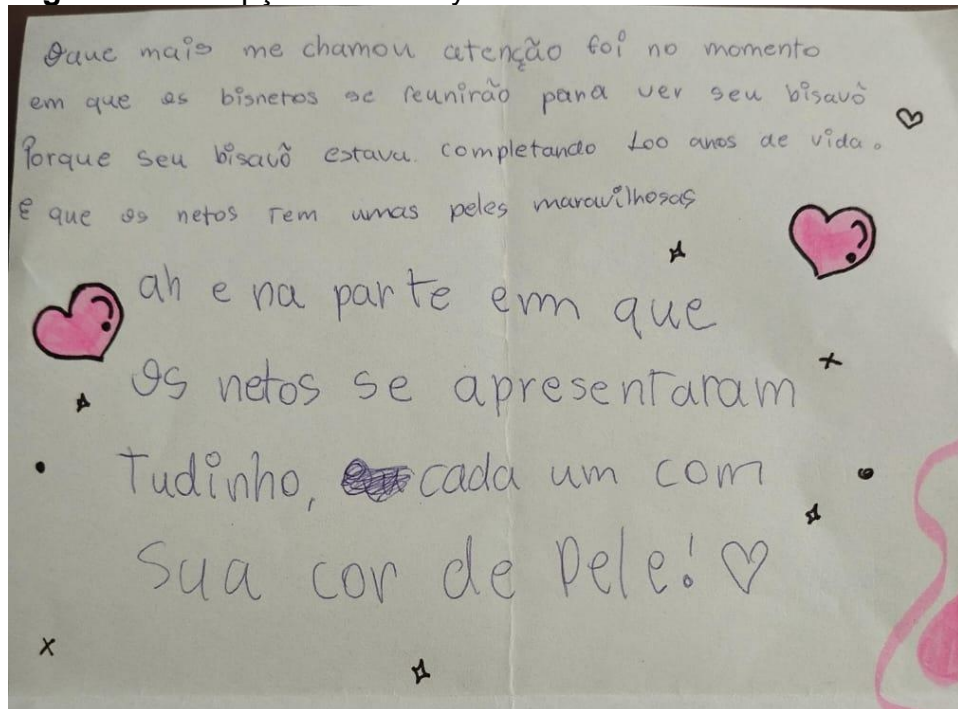 Oque mais me chamou atenção foi no momento
em que os bisnetos se reunirão para ver seu bisavô
Porque seu bisavô estava completando 100 anos de vida.
E que os netos tem umas peles maravilhosas
ah e na parte em que
os netos se apresentaram
Tudinho, cada um com
Sua cor de pele!